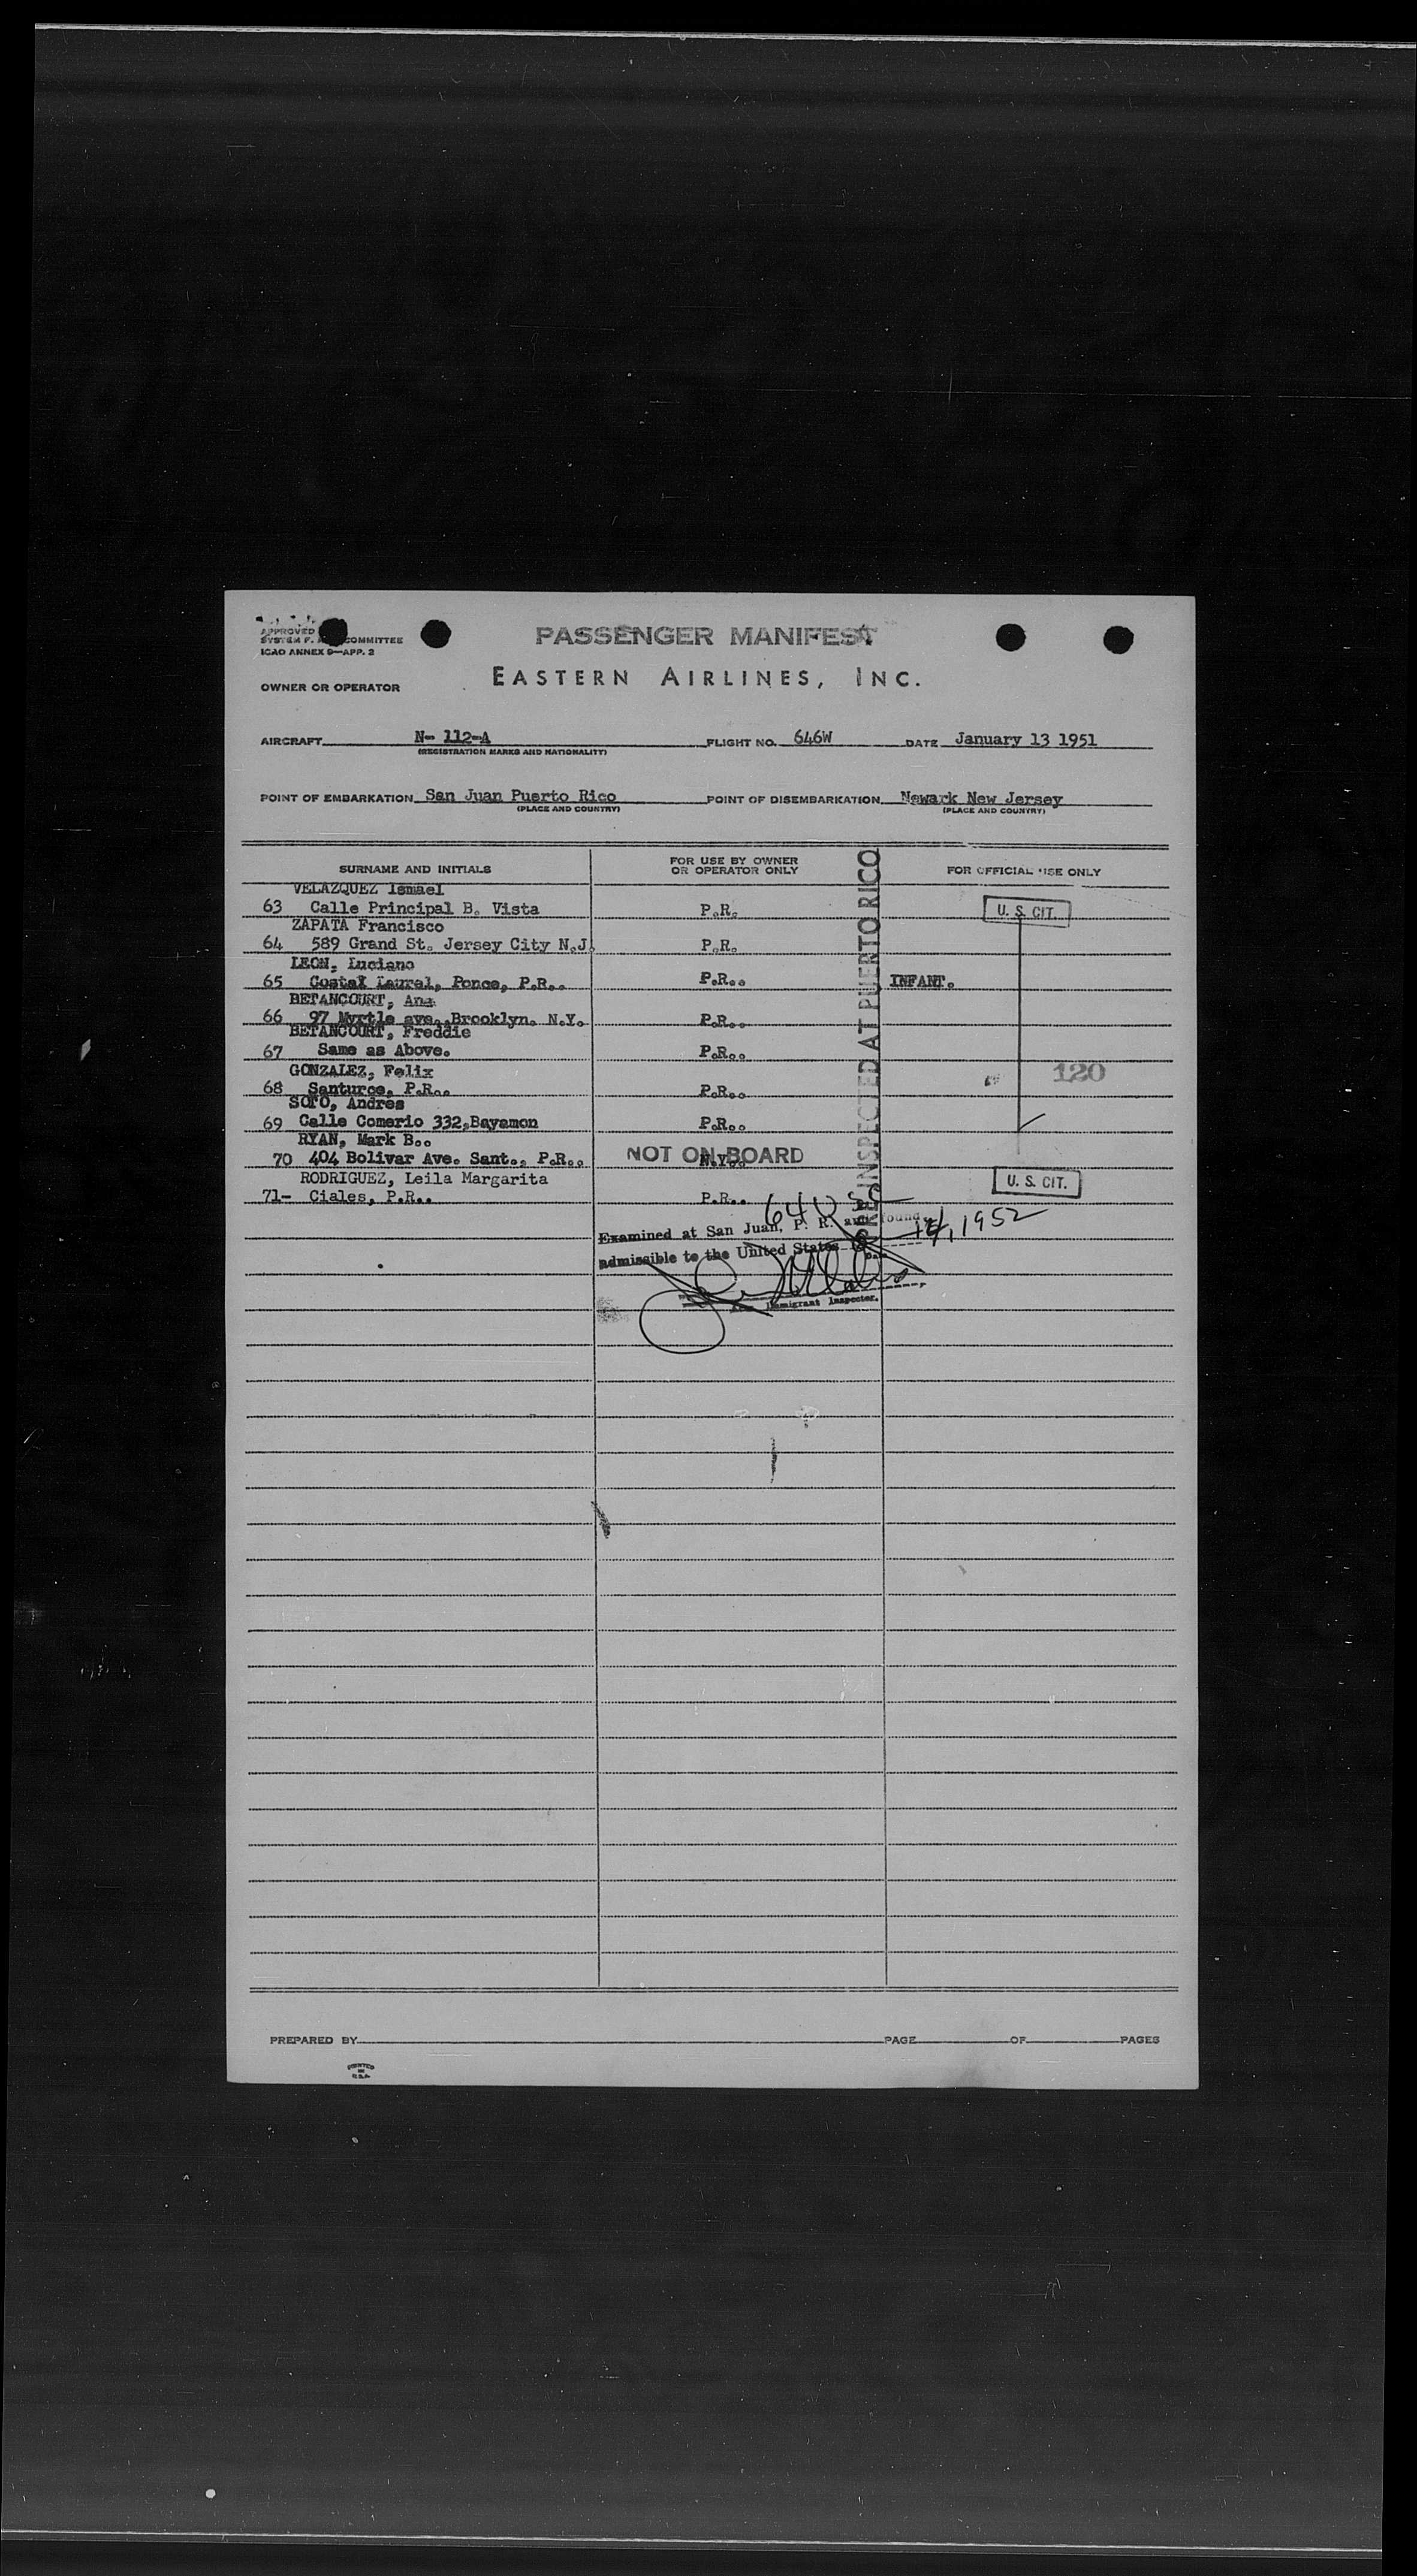 APPROVED
SYSTEM F. COMMITTEE
ICAO ANNEX 9—APP. 2
PASSENGER MANIFEST
EASTERN AIRLINES, INC.
OWNER OR OPERATOR
AIRCRAFT N- 112-A FLIGHT NO. 646W DATE January 13 1951
(REGISTRATION MARKS AND NATIONALITY)
POINT OF EMBARKATION San Juan Puerto Rico POINT OF DISEMBARKATION Newark New Jersey
(PLACE AND COUNTRY) (PLACE AND COUNTRY)
SURNAME AND INITIALS FOR USE BY OWNER OR OPERATOR ONLY FOR OFFICIAL USE ONLY
PRE-INSPECTED AT PUERTO RICO
VELAZQUEZ Ismael
63 Calle Principal B. Vista P.R. U. S. CIT.
ZAPATA Francisco
64 589 Grand St. Jersey City N.J. P.R.
LEON, Luciano
65 Costal Laurel, Ponce, P.R.. P.R.. INFANT.
BETANCOURT, Ana
66 97 Myrtle ave,.Brooklyn. N.Y. P.R..
BETANCOURT, Freddie
67 Same as Above. P.R..
GONZALEZ, Felix 120
68 Santurce, P.R.. P.R..
SOTO, Andres
69 Calle Comerio 332,Bayamon P.R..
RYAN, Mark B..
70 404 Bolivar Ave. Sant., P.R.. NOT ON BOARD N.Y..
RODRIGUEZ, Leila Margarita U. S. CIT.
71- Ciales, P.R.. P.R..
Examined at San Juan, P. R. and found
admissible to the United States 1952
Immigrant Inspector.
PREPARED BY PAGE OF PAGES
PRINTED
IN
U.S.A.